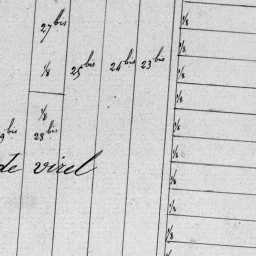 27 bis
⅛
25 bis
24 bis
23 bis
⅛
28 bis
9 bis
de virel
⅛
⅛
⅛
⅛
⅛
⅛
⅛
⅛
⅛